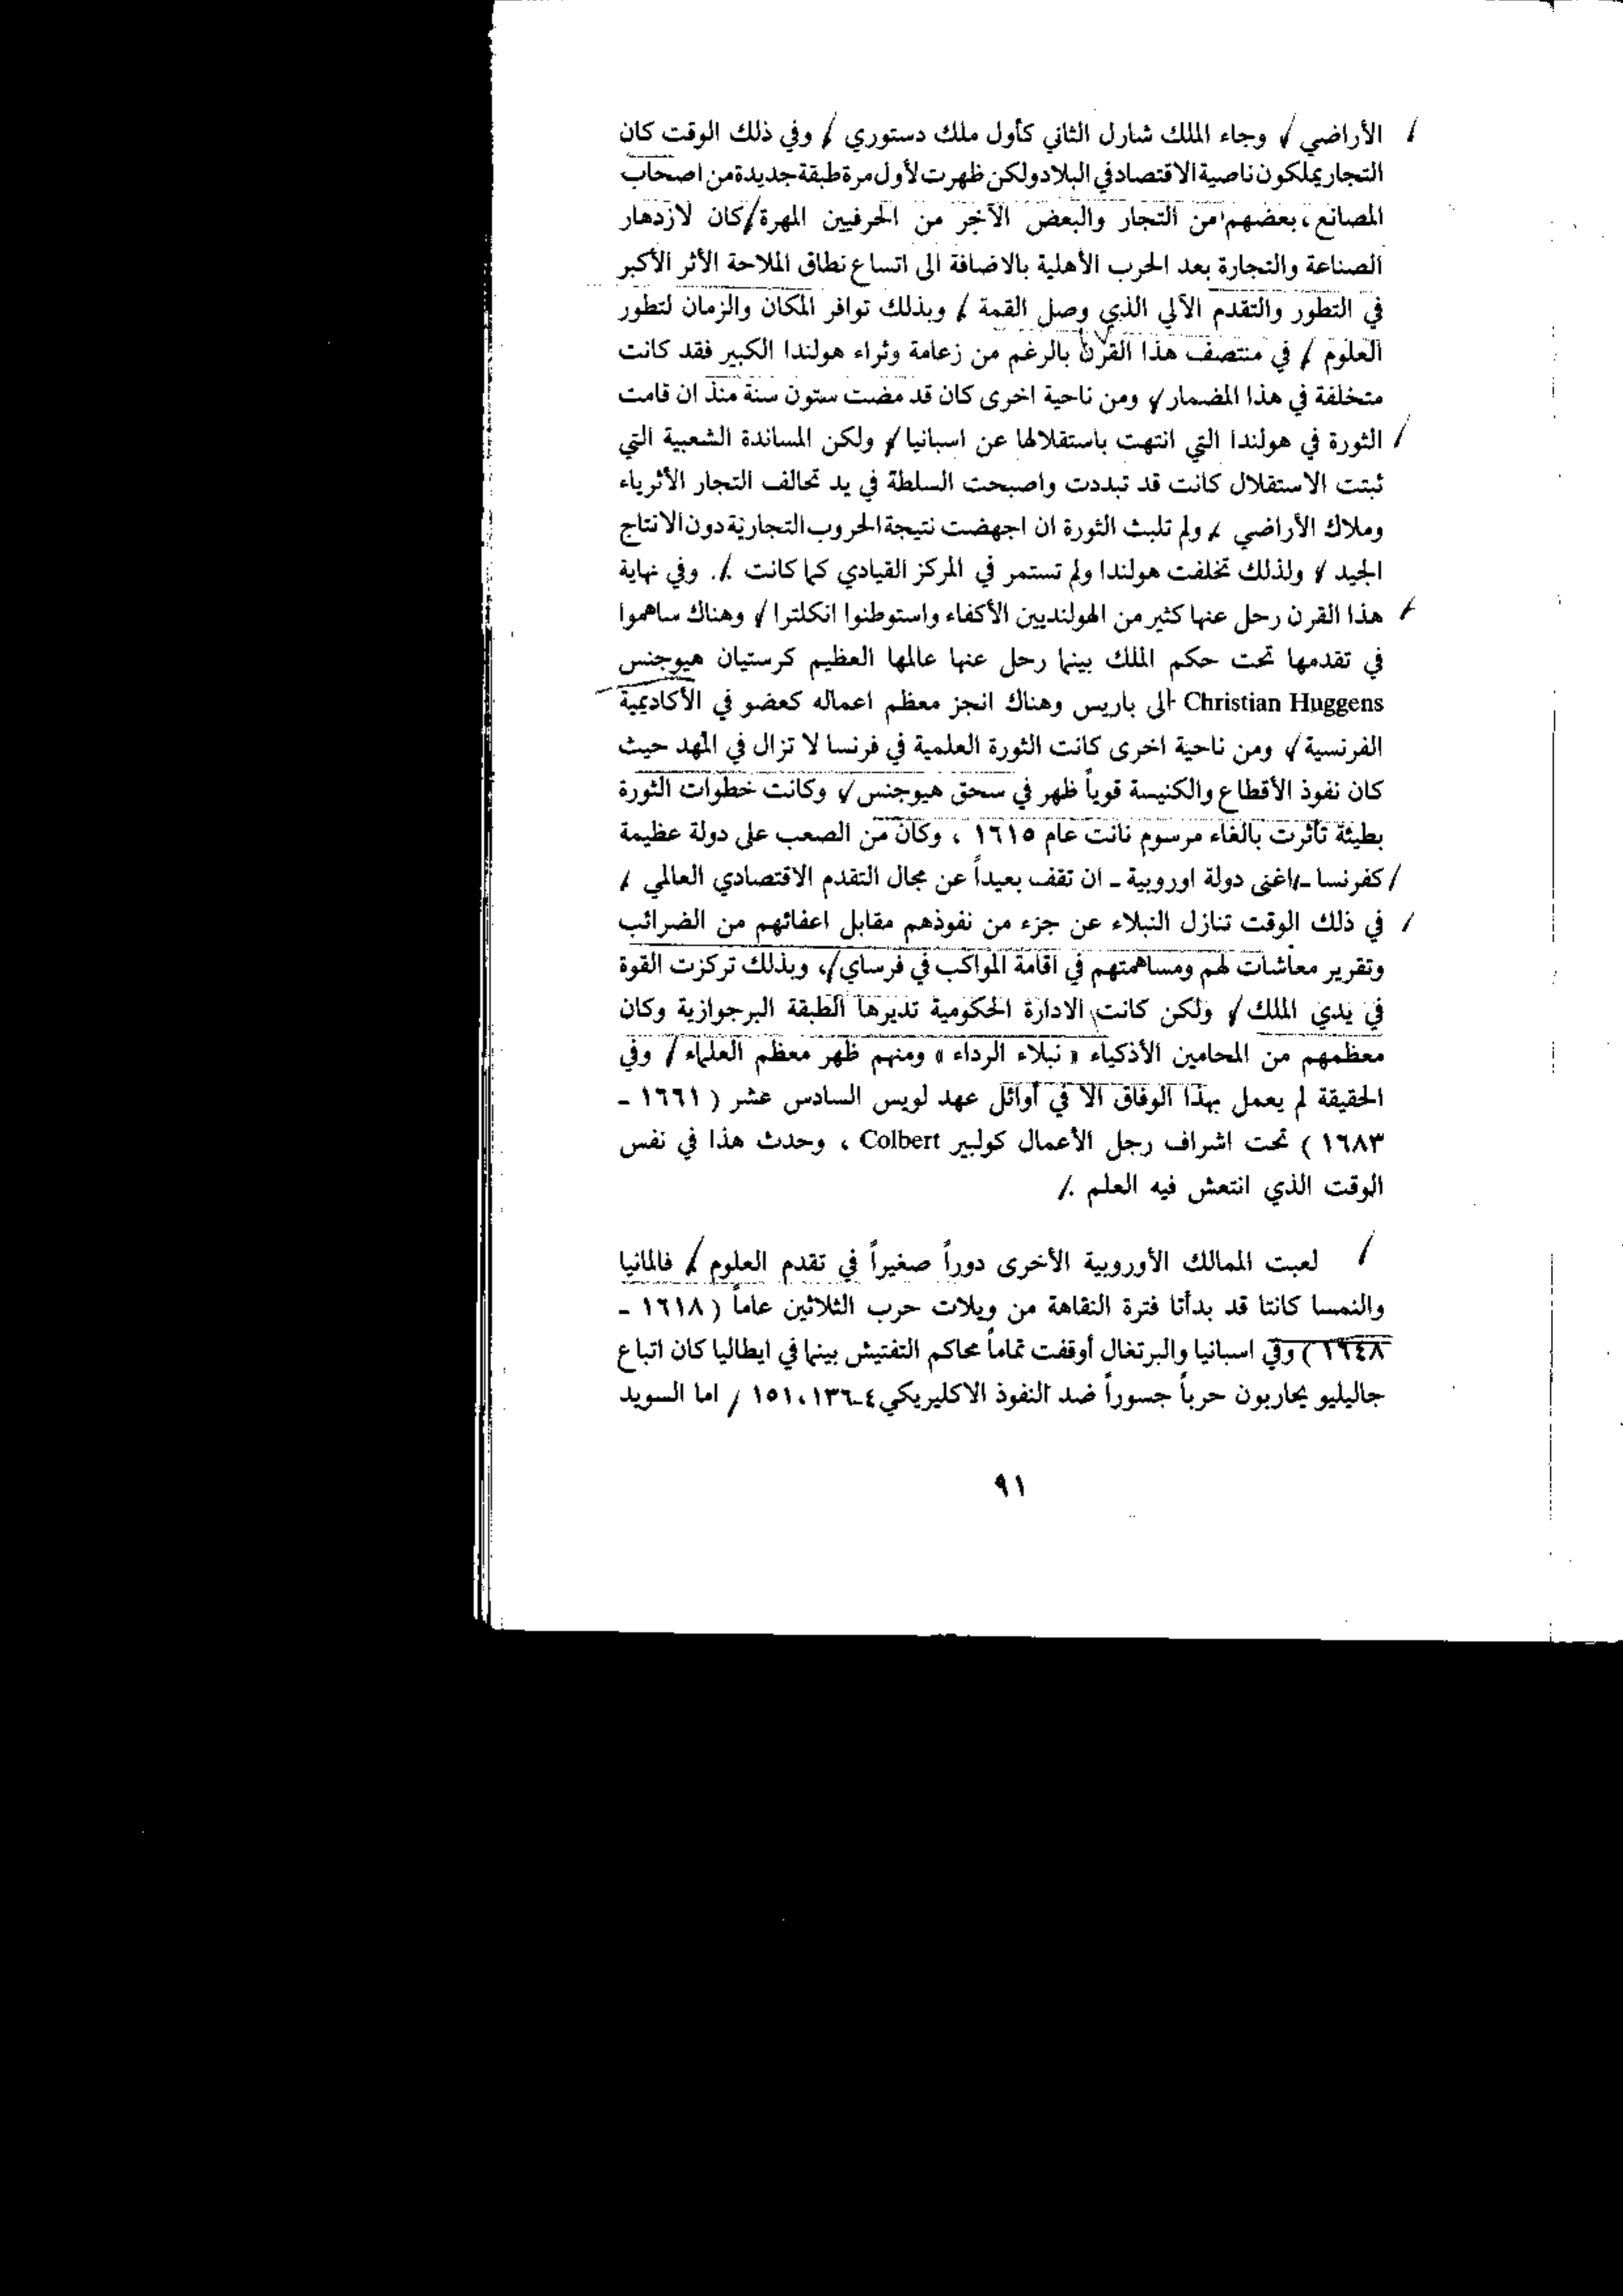 الأراضي / وجاء الملك شارل الثاني كأول ملك دستوري / وفي ذلك الوقت كان
التجار يملكون ناصية الاقتصاد في البلاد ولكن ظهرت لأول مرة طبقة جديدة من اصحاب
المصانع ، بعضهم من التجار والبعض الآخر من الحرفيين المهرة / كان لازدهار
الصناعة والتجارة بعد الحرب الأهلية بالاضافة الى اتساع نطاق الملاحة الأثر الأكبر
في التطور والتقدم الآلي الذي وصل القمة / وبذلك توافر المكان والزمان لتطور
العلوم / في منتصف هذا القرن بالرغم من زعامة وثراء هولندا الكبير فقد كانت
متخلفة في هذا المضمار / ومن ناحية اخرى كان قد مضت ستون سنة منذ ان قامت
الثورة في هولندا التي انتهت باستقلالها عن اسبانيا / ولكن المساندة الشعبية التي
ثبتت الاستقلال كانت قد تبددت واصبحت السلطة في يد تحالف التجار الأثرياء
وملاك الأراضي / ولم تلبث الثورة ان اجهضت نتيجة الحروب التجارية دون الانتاج
الجيد / ولذلك تخلفت هولندا ولم تستمر في المركز القيادي كما كانت /. وفي نهاية
هذا القرن رحل عنها كثير من الهولنديين الأكفاء واستوطنوا انكلترا / وهناك ساهموا
في تقدمها تحت حكم الملك بينما رحل عنها عالمها العظيم كرستيان هيوجنس
Christian Huggens الى باريس وهناك انجز معظم اعماله كعضو في الأكاديمية
الفرنسية / ومن ناحية اخرى كانت الثورة العلمية في فرنسا لا تزال في المهد حيث
كان نفوذ الأقطاع والكنيسة قوياً ظهر في سحق هيوجنس / وكانت خطوات الثورة
بطيئة تأثرت بالغاء مرسوم نانت عام ١٦١٥ ، وكان من الصعب على دولة عظيمة
كفرنسا ـ اغنى دولة اوروبية ـ ان تقف بعيداً عن مجال التقدم الاقتصادي العالمي /
في ذلك الوقت تنازل النبلاء عن جزء من نفوذهم مقابل اعفائهم من الضرائب
وتقرير معاشات لهم ومساهمتهم في اقامة المواكب في فرساي /، وبذلك تركزت القوة
في يدي الملك / ولكن كانت الادارة الحكومية تديرها الطبقة البرجوازية وكان
معظمهم من المحامين الأذكياء « نبلاء الرداء » ومنهم ظهر معظم العلماء / وفي
الحقيقة لم يعمل بهذا الوفاق الا في أوائل عهد لويس السادس عشر ( ١٦٦١ ـ
١٦٨٣ ) تحت اشراف رجل الأعمال كولبير Colbert ، وحدث هذا في نفس
الوقت الذي انتعش فيه العلم ./
لعبت الممالك الأوروبية الأخرى دوراً صغيراً في تقدم العلوم / فالمانيا
والنمسا كانتا قد بدأتا فترة النقاهة من ويلات حرب الثلاثين عاماً ( ١٦١٨ ـ
١٦٤٨ ) وفي اسبانيا والبرتغال أوقفت تماماً محاكم التفتيش بينما في ايطاليا كان اتباع
جاليليو يحاربون حرباً جسوراً ضد النفوذ الاكليريكي ٤ـ١٣٦، ١٥١ / اما السويد
٩١